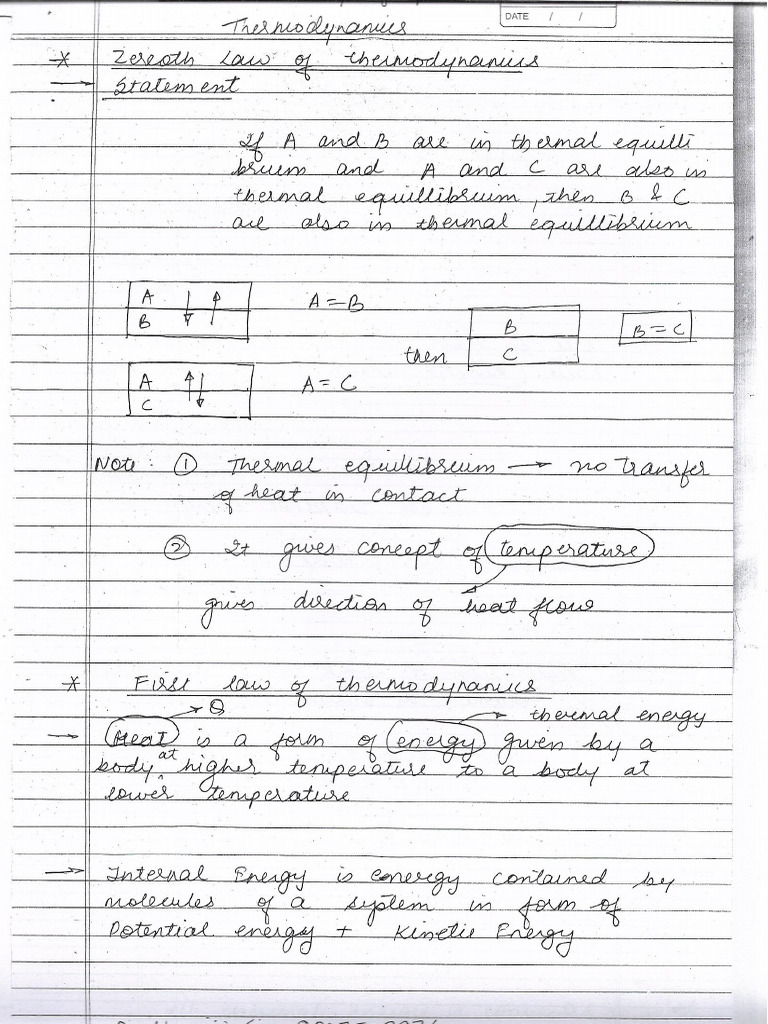 Thermodynamics
DATE / /
* Zeroth Law of thermodynamics
→ Statement
If A and B are in thermal equilli
brium and A and C are also in
thermal equillibrium, then B & C
are also in thermal equillibrium
A
B
A = B
A
C
A = C
then
B
C
B = C
Note : ① Thermal equillibrium → no transfer
of heat in contact
② It gives concept of temperature
gives direction of heat flow
* First law of thermodynamics
Q
thermal energy
→ Heat is a form of energy given by a
body at higher temperature to a body at
lower temperature
→ Internal Energy is energy contained by
molecules of a system in form of
Potential energy + Kinetic Energy